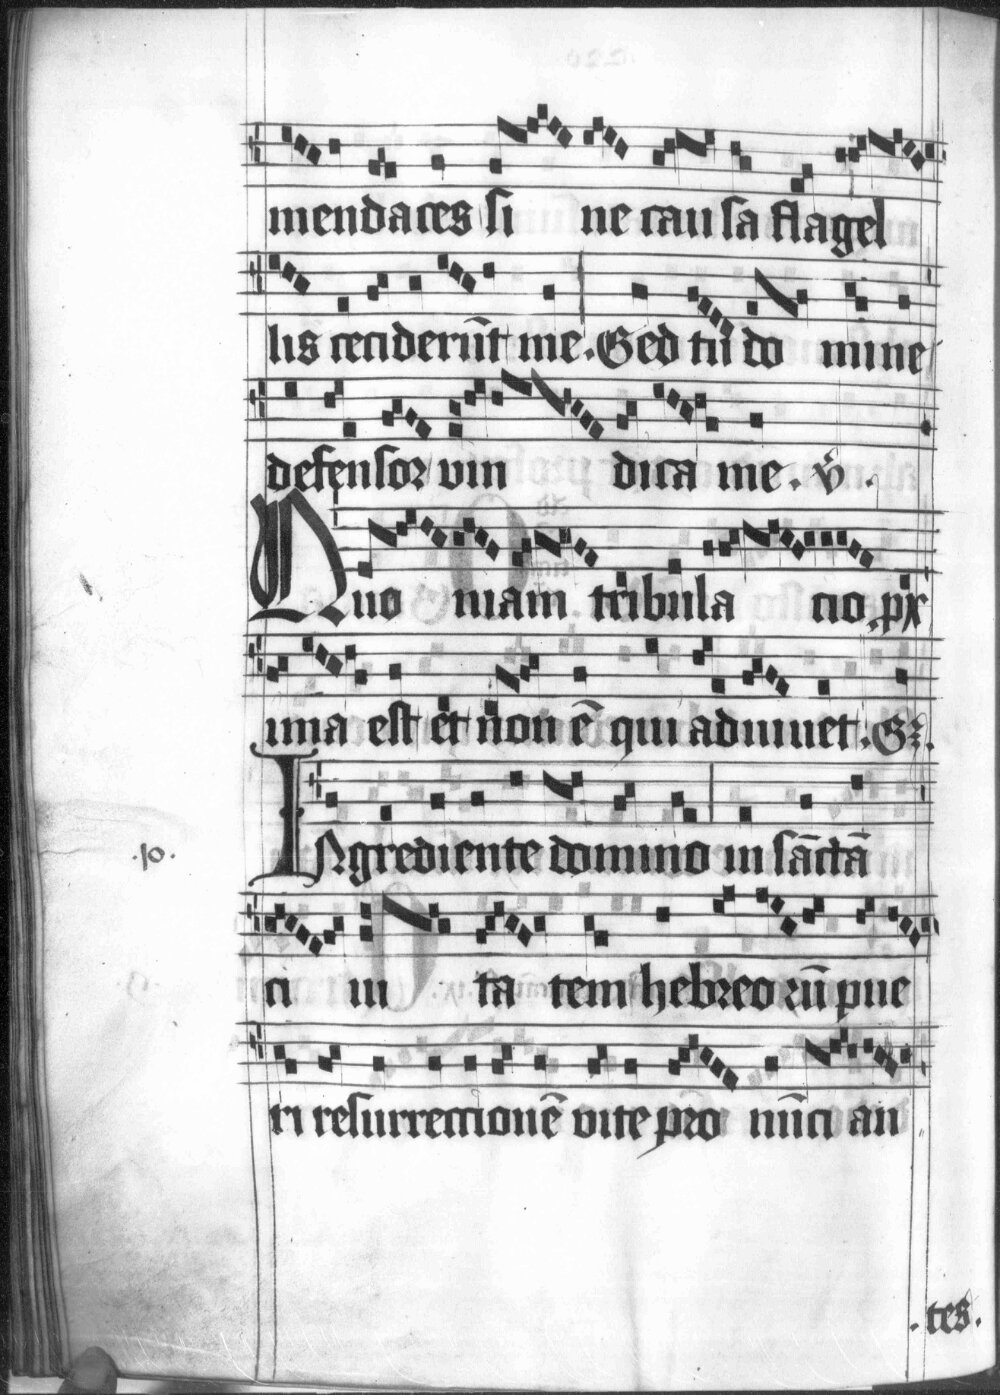 mendaces si ne cau sa flagel
lis ceciderūt me. Sed tu do mine
defensor vin dica me. v̄.
Quo niam tribula cio, px
ima est et non ē qui adiuuet. Sz.
.10.
INgrediente domino in sāctā
ci ui ta tem hebreo rū pue
ri resurrectionē vite pro nūci an
.tes.